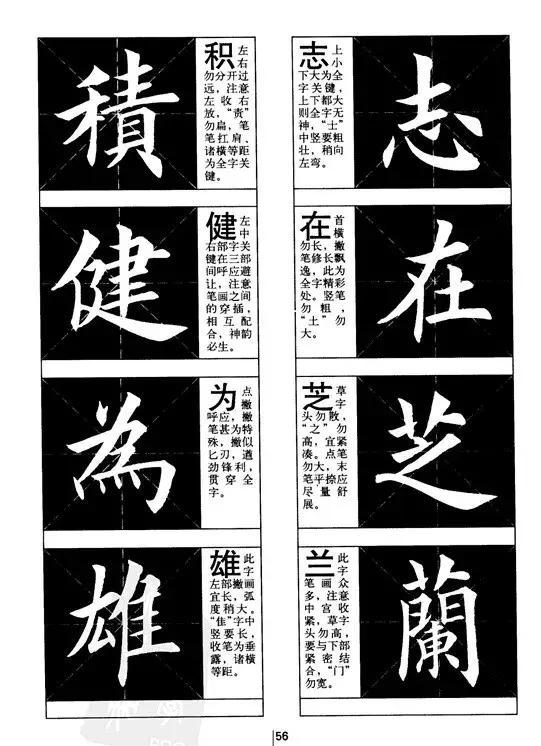 積
积 左
右
勿分开过
远，注意
左收右
放，“责”
勿扁，笔
笔扛肩、
诸横等距
为全字关
键。
健
健 左
中
右部字关
键在三部
间呼应避
让，注意
笔画之间
的穿插，
相互配
合，神韵
必生。
為
为 点
撇
呼应，撇
笔甚为特
殊，撇似
匕刃，遒
劲锋利，
贯穿全
字。
雄
雄 此
字
左部撇画
宜长，弧
度稍大。
“隹”字中
竖要长，
收笔为垂
露，诸横
等距。
志
志 上
小
下大为全
字关键，
上下都大
则全字无
神，“士”
中竖要粗
壮，稍向
左弯。
在
在 首
横
勿长，撇
笔修长飘
逸，此为
全字精彩
处。竖笔
勿粗，
“土”勿
大。
芝
芝 草
字
头勿散，
“之”勿
高，宜紧
凑。点笔
勿大，末
笔平捺应
尽量舒
展。
蘭
兰 此
字
笔画众
多，注意
中宫收
紧，草字
头勿高，
要与下部
紧密结
合，“门”
勿宽。
56